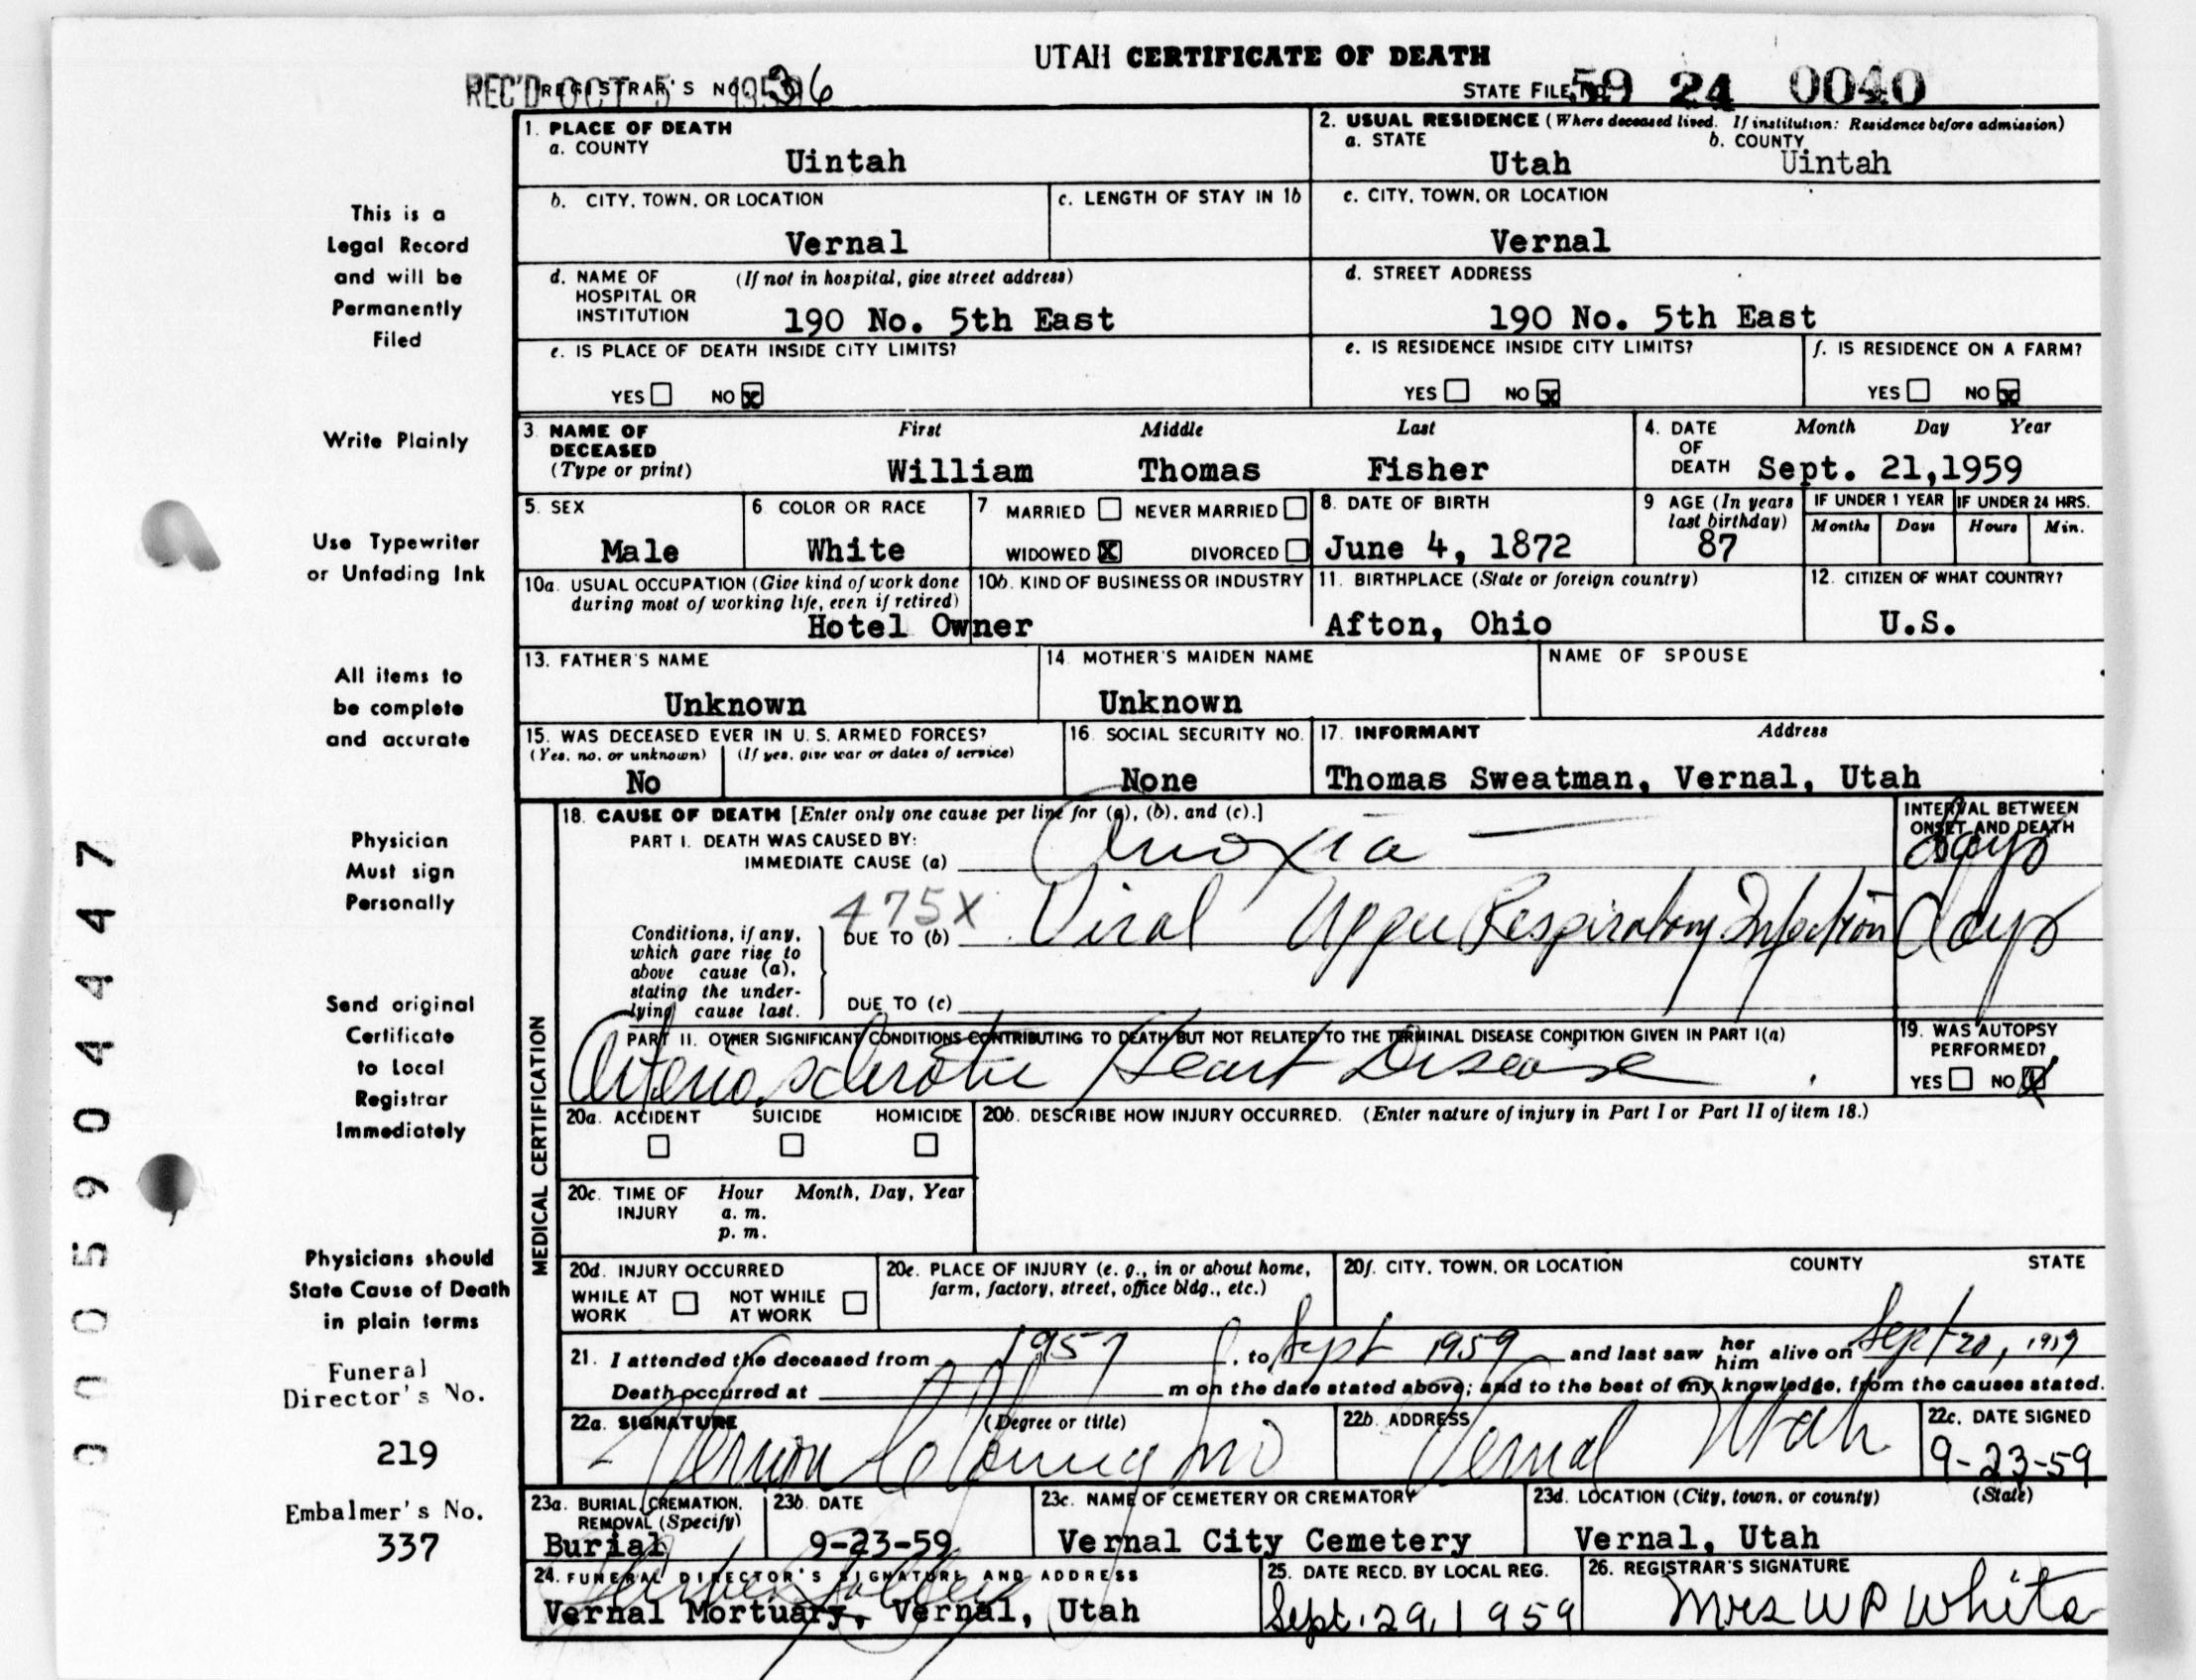 UTAH CERTIFICATE OF DEATH
REC'D OCT 5 1959 REGISTRAR'S NO. 36 STATE FILE NO. 59 24 0040
1. PLACE OF DEATH
a. COUNTY
Uintah
2. USUAL RESIDENCE (Where deceased lived. If institution: Residence before admission)
a. STATE b. COUNTY
Utah Uintah
b. CITY, TOWN, OR LOCATION
Vernal
c. LENGTH OF STAY IN 1b
c. CITY, TOWN, OR LOCATION
Vernal
d. NAME OF HOSPITAL OR INSTITUTION (If not in hospital, give street address)
190 No. 5th East
d. STREET ADDRESS
190 No. 5th East
e. IS PLACE OF DEATH INSIDE CITY LIMITS?
YES NO x
e. IS RESIDENCE INSIDE CITY LIMITS?
YES NO x
f. IS RESIDENCE ON A FARM?
YES NO x
3. NAME OF DECEASED (Type or print)
First Middle Last
William Thomas Fisher
4. DATE OF DEATH
Month Day Year
Sept. 21,1959
5. SEX
Male
6. COLOR OR RACE
White
7. MARRIED NEVER MARRIED
WIDOWED X DIVORCED
8. DATE OF BIRTH
June 4, 1872
9. AGE (In years last birthday)
87
IF UNDER 1 YEAR
Months Days
IF UNDER 24 HRS.
Hours Min.
10a. USUAL OCCUPATION (Give kind of work done during most of working life, even if retired)
Hotel Owner
10b. KIND OF BUSINESS OR INDUSTRY
11. BIRTHPLACE (State or foreign country)
Afton, Ohio
12. CITIZEN OF WHAT COUNTRY?
U.S.
13. FATHER'S NAME
Unknown
14. MOTHER'S MAIDEN NAME
Unknown
NAME OF SPOUSE
15. WAS DECEASED EVER IN U. S. ARMED FORCES?
(Yes, no, or unknown) (If yes, give war or dates of service)
No
16. SOCIAL SECURITY NO.
None
17. INFORMANT Address
Thomas Sweatman, Vernal, Utah
MEDICAL CERTIFICATION
18. CAUSE OF DEATH [Enter only one cause per line for (a), (b), and (c).]
PART I. DEATH WAS CAUSED BY:
IMMEDIATE CAUSE (a) Anoxia
INTERVAL BETWEEN ONSET AND DEATH
days
475X
Conditions, if any, which gave rise to above cause (a), stating the underlying cause last.
DUE TO (b) Viral Upper Respiratory Infection days
DUE TO (c)
PART II. OTHER SIGNIFICANT CONDITIONS CONTRIBUTING TO DEATH BUT NOT RELATED TO THE TERMINAL DISEASE CONDITION GIVEN IN PART I(a)
Arteriosclerotic Heart Disease
19. WAS AUTOPSY PERFORMED?
YES NO X
20a. ACCIDENT SUICIDE HOMICIDE
20b. DESCRIBE HOW INJURY OCCURRED. (Enter nature of injury in Part I or Part II of item 18.)
20c. TIME OF INJURY Hour Month, Day, Year
a. m.
p. m.
20d. INJURY OCCURRED
WHILE AT WORK NOT WHILE AT WORK
20e. PLACE OF INJURY (e. g., in or about home, farm, factory, street, office bldg., etc.)
20f. CITY, TOWN, OR LOCATION COUNTY STATE
21. I attended the deceased from 1957, to Sept 1959 and last saw her him alive on Sept 20, 1959
Death occurred at m on the date stated above; and to the best of my knowledge, from the causes stated.
22a. SIGNATURE (Degree or title)
Vernon Young MD
22b. ADDRESS
Vernal Utah
22c. DATE SIGNED
9-23-59
23a. BURIAL, CREMATION, REMOVAL (Specify)
Burial
23b. DATE
9-23-59
23c. NAME OF CEMETERY OR CREMATORY
Vernal City Cemetery
23d. LOCATION (City, town, or county) (State)
Vernal, Utah
24. FUNERAL DIRECTOR'S SIGNATURE AND ADDRESS
Vernal Mortuary, Vernal, Utah
25. DATE RECD. BY LOCAL REG.
Sept. 29, 1959
26. REGISTRAR'S SIGNATURE
Mrs W P White
This is a
Legal Record
and will be
Permanently
Filed
Write Plainly
Use Typewriter
or Unfading Ink
All items to
be complete
and accurate
Physician
Must sign
Personally
Send original
Certificate
to Local
Registrar
Immediately
Physicians should
State Cause of Death
in plain terms
Funeral
Director's No.
219
Embalmer's No.
337
0005904447